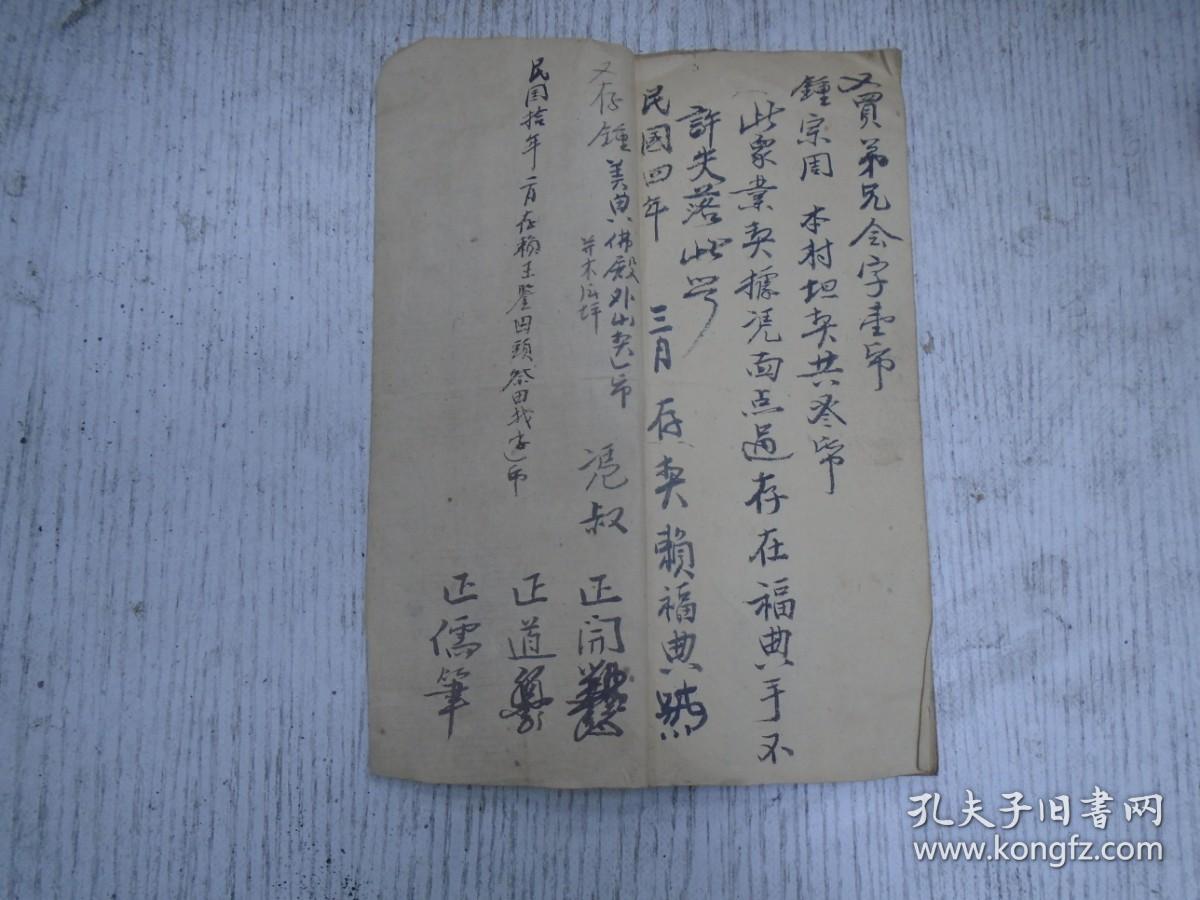 又買弟兄会字壹帋
鍾宗周 本村坦契共叁帋
此衆業契據凭面点過存在福典手不
許失落此号
民國四年 三月 存契賴福典
又存鍾美典佛殿外山契一帋 憑叔 正開
并木后坪
民国拾年 二月在賴王 田頭祭田 一帋 正道
正儒筆
孔夫子旧书网
www.kongfz.com